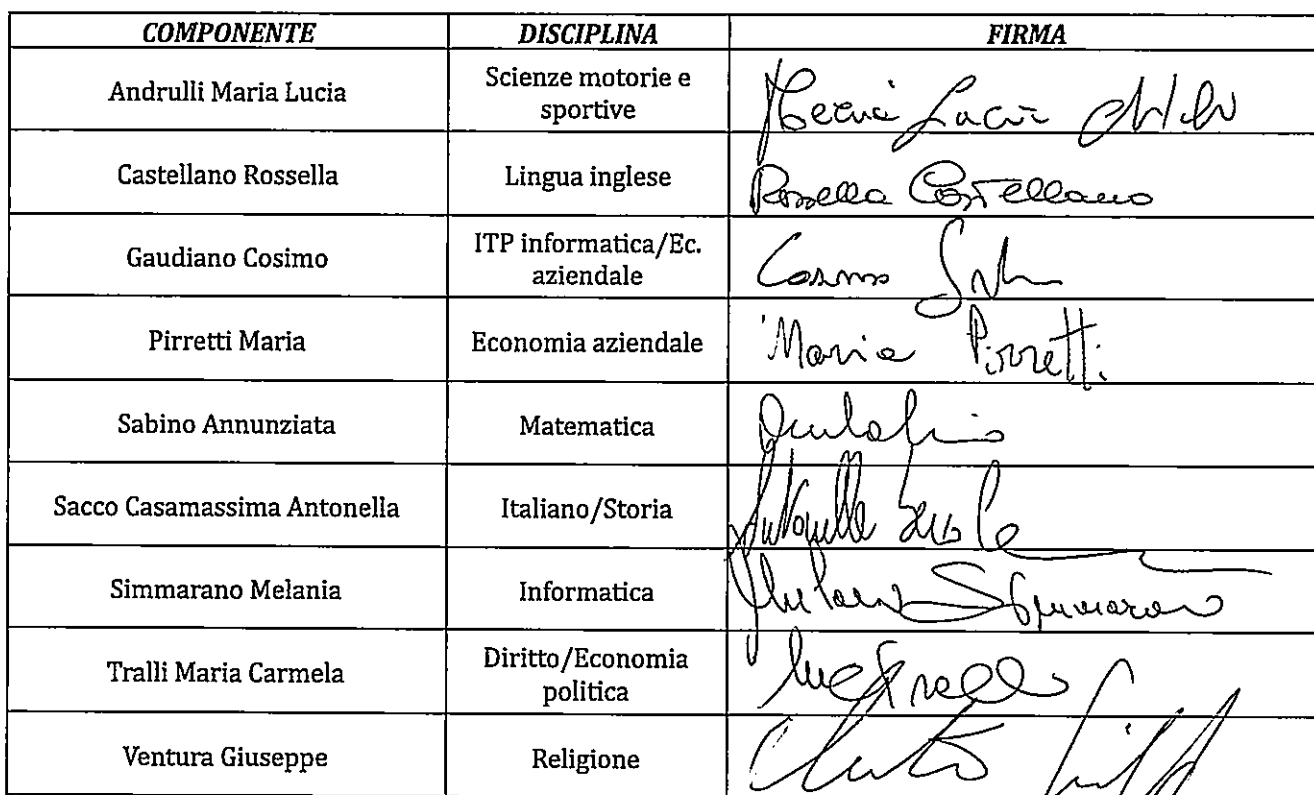 COMPONENTE DISCIPLINA FIRMA
Andrulli Maria Lucia Scienze motorie e sportive Maria Lucia
Castellano Rossella Lingua inglese Rossella Castellano
Gaudiano Cosimo ITP informatica/Ec. aziendale Cosimo
Pirretti Maria Economia aziendale Maria Pirretti
Sabino Annunziata Matematica
Sacco Casamassima Antonella Italiano/Storia Antonella
Simmarano Melania Informatica Melania Simmarano
Tralli Maria Carmela Diritto/Economia politica
Ventura Giuseppe Religione